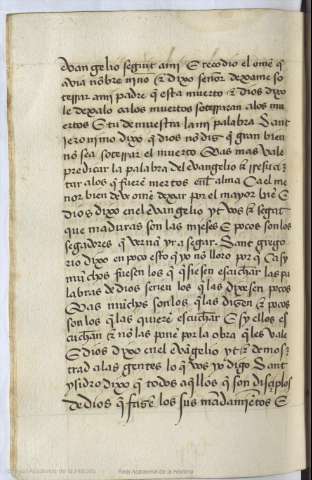 evangelio seguit a mi E recodio el ome q
avia nobre nino E dixo señor dexame so
terrar a mi padre q esta muerto E dios dixo
le dexalo ca los muertos soterraran a los mu
ertos E tu demuestra la mi palabra Sant
Jeronimo dixo q dios no dize q gran bien
no sea soterrar el muerto Mas mas vale
predicar la palabra del evangelio E resusci
tar a los q fueren muertos en el alma Ca el me
nor bien deve ome dexar por el mayor bie E
dios dixo en el evangelio
que maduras son las mieses E pocos son los
segadores q verna yr a segar Sant grego
rio dixo en poco esto q yo no lloro por q Ca sy
muchos fuesen los q qsiesen escuchar las pa
labras de dios serien los q las dixesen pocos
Mas muchos son los q las dizen E pocos
son los q las quiere escuchar E sy ellos es
cucha E no las pone por la obra q les vale
E dios dixo en el evagelio yt E demos
trad a las gentes lo q vos yo digo Sant
ysidro dixo q todos aqllos q son disciplos
de dios q fazen los sus madamietos E
Real Academia de la Historia